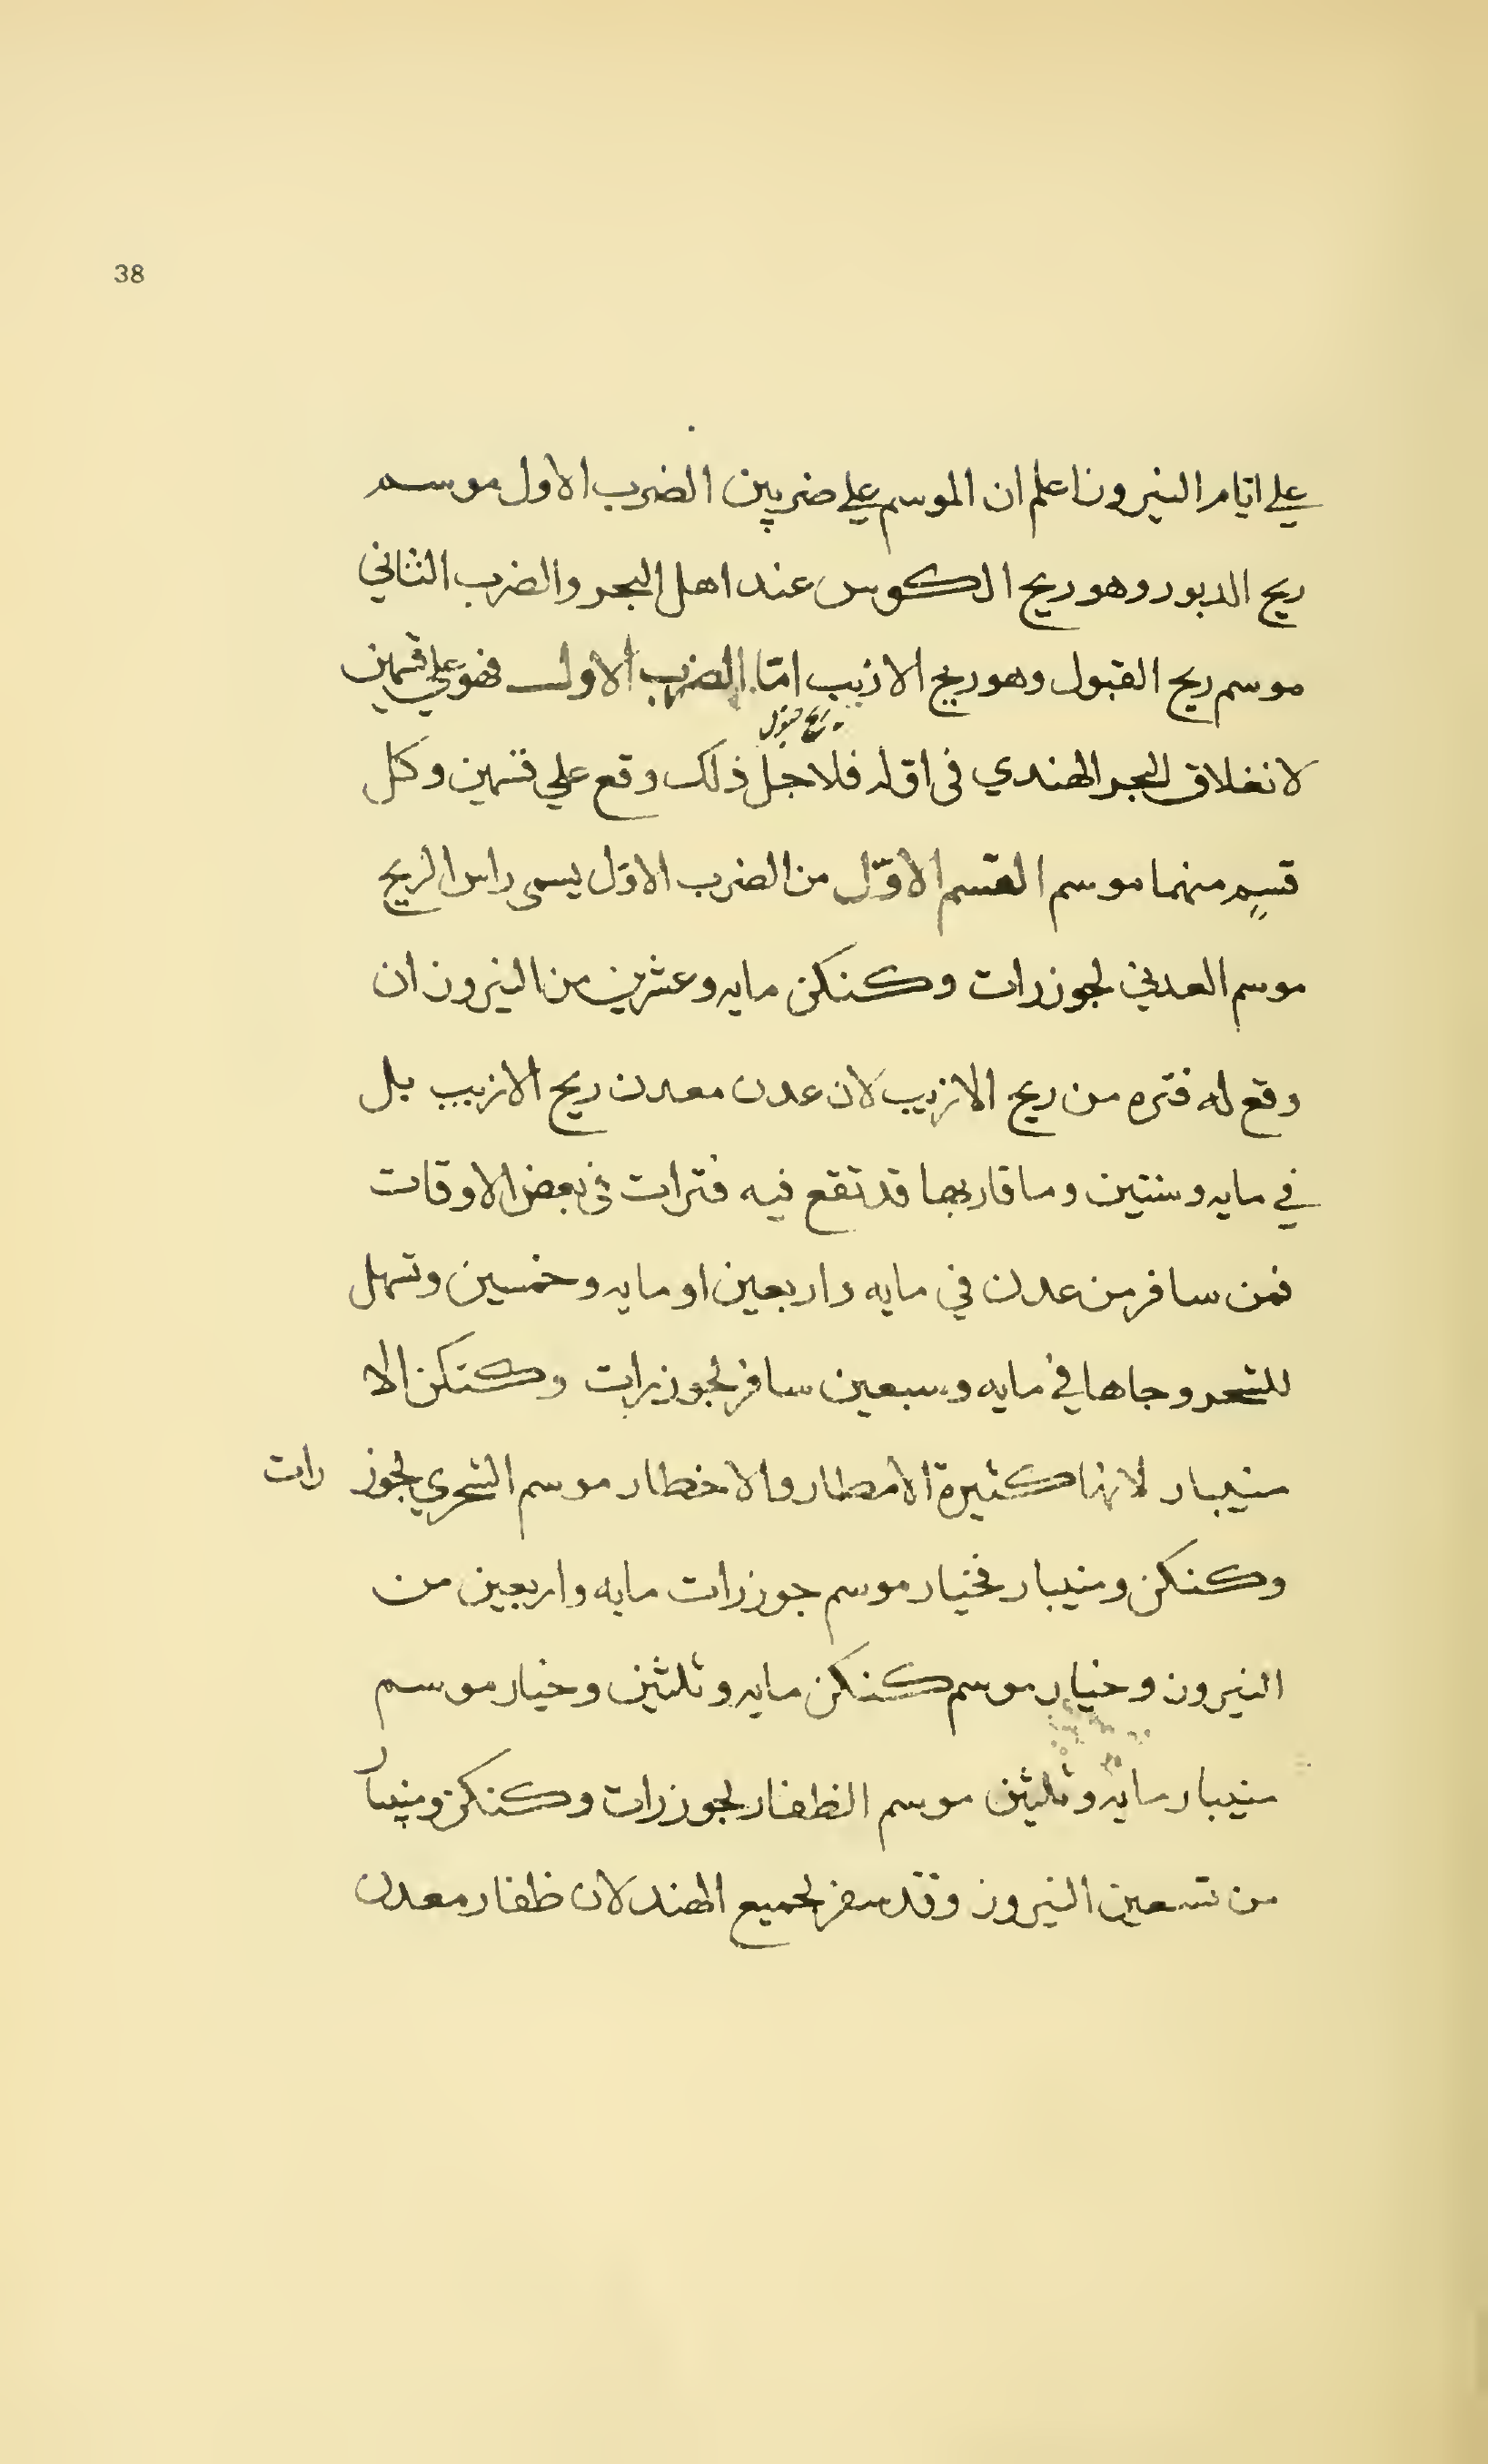 38
علي ايام النيروز اعلم ان الموسم علي ضربين الضرب الاول موسم
ريح الدبور وهو ريح الكوس عند اهل البحر والضرب الثاني
موسم ريح القبول وهو ريح الازيب امّا الضرب الاول فهو علي قسمين
لانغلاق البحر الهندي في اوّله فلاجل ذلك وقع علي قسمين وكل
قسمٍ منهما موسم القسم الاوّل من الضرب الاوّل يسمي راس الريح
موسم العدني لجوزرات وكنكن مايه وعشرين من النيروز ان
وقع له فتره من ريح الازيب لان عدن معدن ريح الازيب بل
في مايه وستين وما قاربها قد تقع فيه فترات في بعض الاوقات
فمن سافر من عدن في مايه واربعين او مايه وخمسين وتسهل
للشحر وجاها في مايه وسبعين سافر لجوزرات وكنكن الا
منيبار لانها كثيرة الامطار والاخطار موسم الشحري لجوزرات
وكنكن ومنيبار فخيار موسم جوزرات مايه واربعين من
النيروز وخيار موسم كنكن مايه وثلثين وخيار موسم
منيبار مايه وثلثين موسم الظفار لجوزرات وكنكن ومنيبار
من تسعين النيروز وقد سفر لجميع الهند لان ظفار معدن